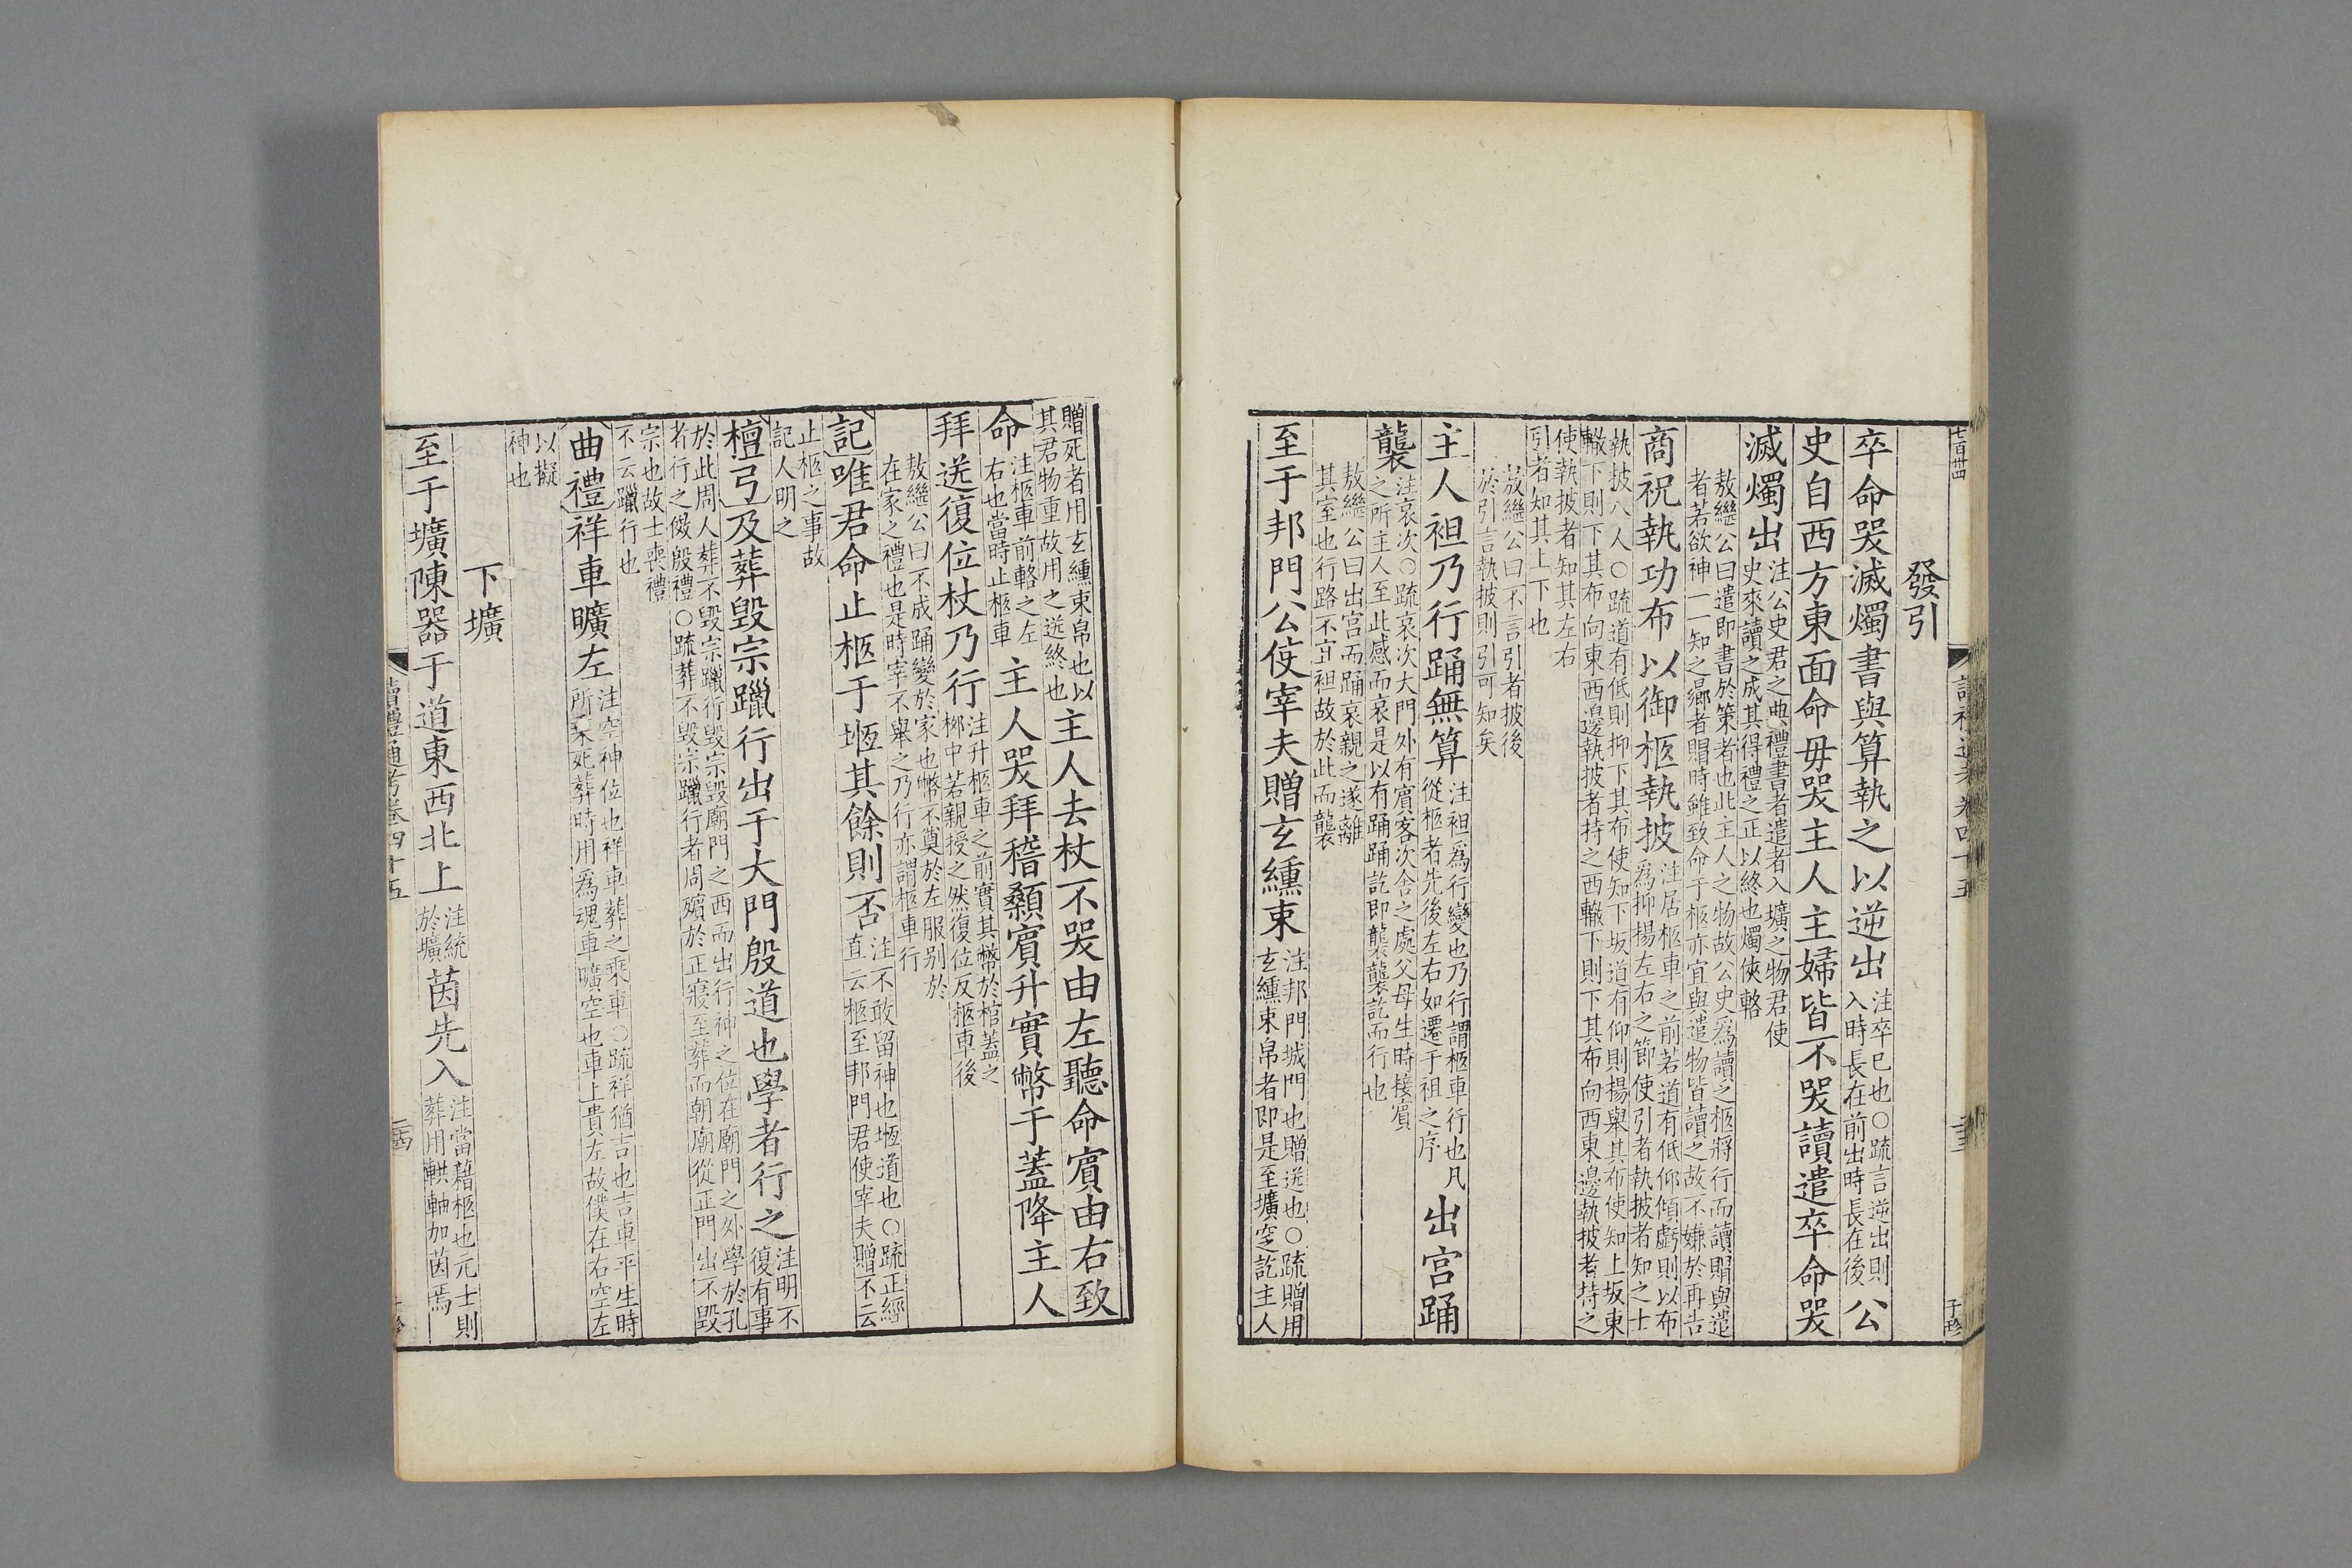 發引
卒命哭滅燭書與算執之以逆出注卒已也○疏言逆出則入時長在前出時長在後公
史自西方東面命毋哭主人主婦皆不哭讀遣卒命哭
滅燭出注公史君之典禮書者遣者入壙之物君使史來讀之成其得禮之正以終也燭俠輅
敖繼公曰遣即書於策者也此主人之物故公史為讀之柩將行而讀賵與遣者若欲神一一知之鄉者賵時雖致命于柩亦宜與遣物皆讀之故不嫌於再告
商祝執功布以御柩執披注居柩車之前若道有低仰傾虧則以布為抑揚左右之節使引者執披者知之士
執披八人○疏道有低則抑下其布使知下坂道有仰則揚舉其布使知上坂東轍下則下其布向東西邊執披者持之西轍下則下其布向西東邊執披者持之
使執披者知其左右引者知其上下也
敖繼公曰不言引者披後於引言執披則引可知矣
主人袒乃行踊無算注袒為行變也乃行謂柩車行也凡從柩者先後左右如遷于祖之序出宮踊
襲注哀次○疏哀次大門外有賓客次舍之處父母生時接賓之所主人至此感而哀是以有踊踊訖即襲襲訖而行也
敖繼公曰出宮而踊哀親之遂離其室也行路不宜袒故於此而襲
至于邦門公使宰夫贈玄纁束注邦門城門也贈送也○疏贈用玄纁束帛者即是至壙窆訖主人
贈死者用玄纁束帛也以其君物重故用之送終也主人去杖不哭由左聽命賓由右致
命注柩車前輅之左右也當時止柩車主人哭拜稽顙賓升實幣于蓋降主人
拜送復位杖乃行注升柩車之前實其幣於棺蓋之柳中若親授之然復位反柩車後
敖繼公曰不成踊變於家也幣不奠於左服別於在家之禮也是時宰不舉之乃行亦謂柩車行
記唯君命止柩于堩其餘則否注不敢留神也堩道也○疏正經直云柩至邦門君使宰夫贈不云
止柩之事故記人明之
檀弓及葬毀宗躐行出于大門殷道也學者行之注明不復有事
於此周人葬不毀宗躐行毀宗毀廟門之西而出行神之位在廟門之外學於孔者行之傚殷禮○疏葬不毀宗躐行者周殯於正寢至葬而朝廟從正門出不毀
宗也故士喪禮不云躐行也
曲禮祥車曠左注空神位也祥車葬之乘車○疏祥猶吉也吉車平生時所乘死葬時用為魂車曠空也車上貴左故僕在右空左
以擬神也
下壙
至于壙陳器于道東西北上注統於壙茵先入注當藉柩也元士則葬用輁軸加茵焉
讀禮通考卷四十五